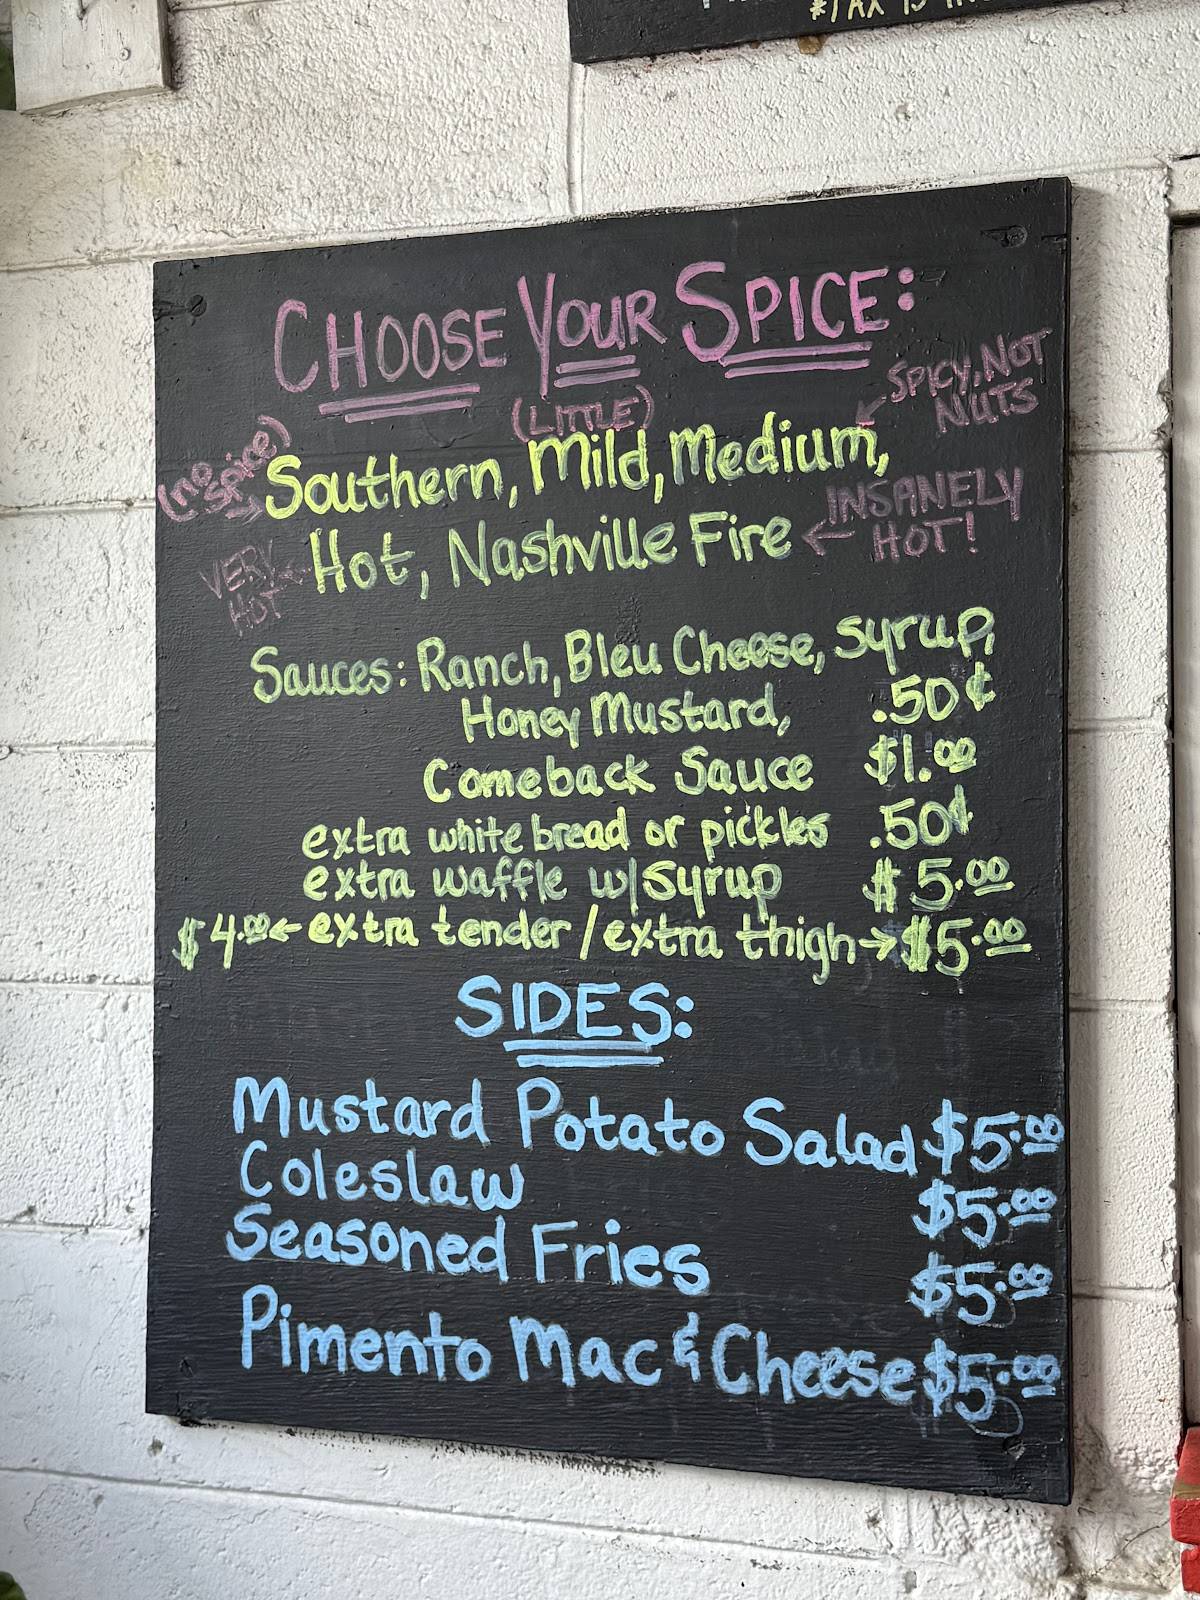 *TAX IS IN
CHOOSE YOUR SPICE:
SPICY, NOT
NUTS
(LITTLE)
(no
spice)
Southern, Mild, Medium,
INSANELY
HOT!
VERY
HOT
Hot, Nashville Fire
Sauces: Ranch, Bleu Cheese, Syrup,
Honey Mustard, .50¢
Comeback Sauce $1.00
extra white bread or pickles .50¢
extra waffle w/ Syrup $5.00
$4.00 ← extra tender / extra thigh → $5.00
SIDES:
Mustard Potato Salad $5.00
Coleslaw $5.00
Seasoned Fries $5.00
Pimento Mac & Cheese $5.00